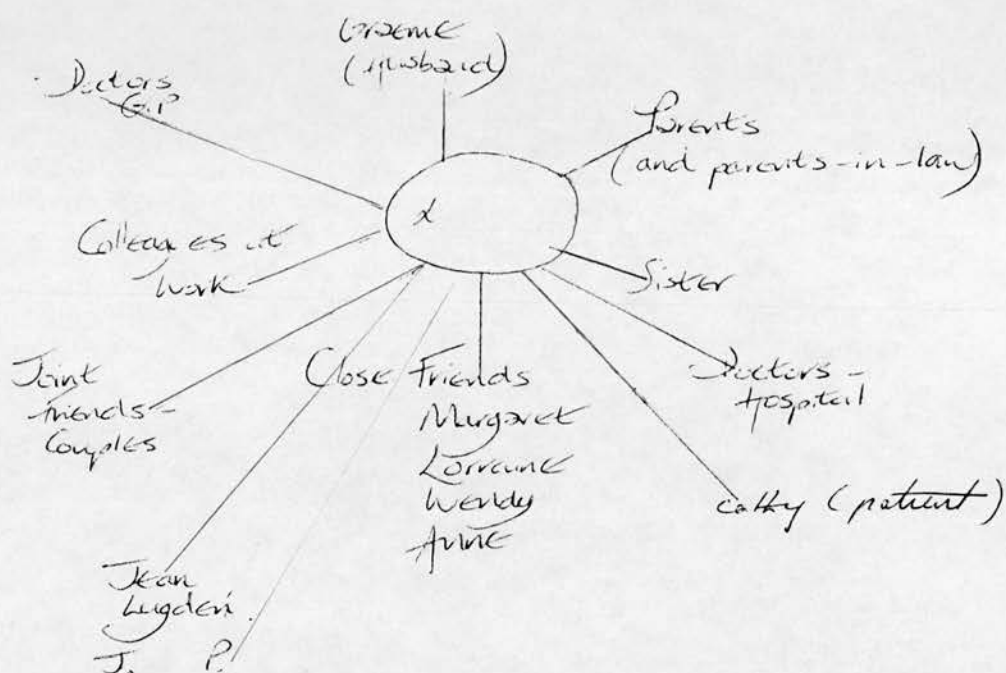 Graeme
(Husband)
Doctors
G.P
Parents
(and parents-in-law)
x
Colleagues at
work
Sister
Joint
friends-
Couples
Close Friends
Margaret
Lorraine
Wendy
Anne
Doctors-
Hospital
cathy (patient)
Jean
Lugden
J. P.